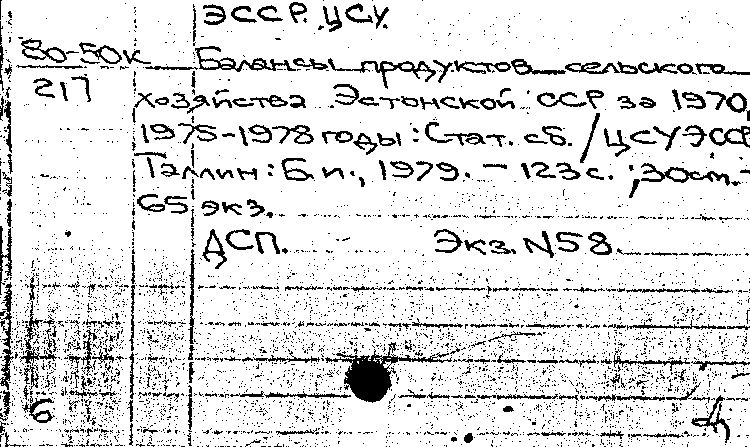 ЭССР. ЦСУ.
80-50к Балансы продуктов сельского
217 хозяйства Эстонской ССР за 1970,
1975-1978 годы: Стат. сб. / ЦСУ ЭССР
Таллин: Б.и., 1979. - 123с. ; 30см.-
65 экз.
ДСП. Экз. N58.
6